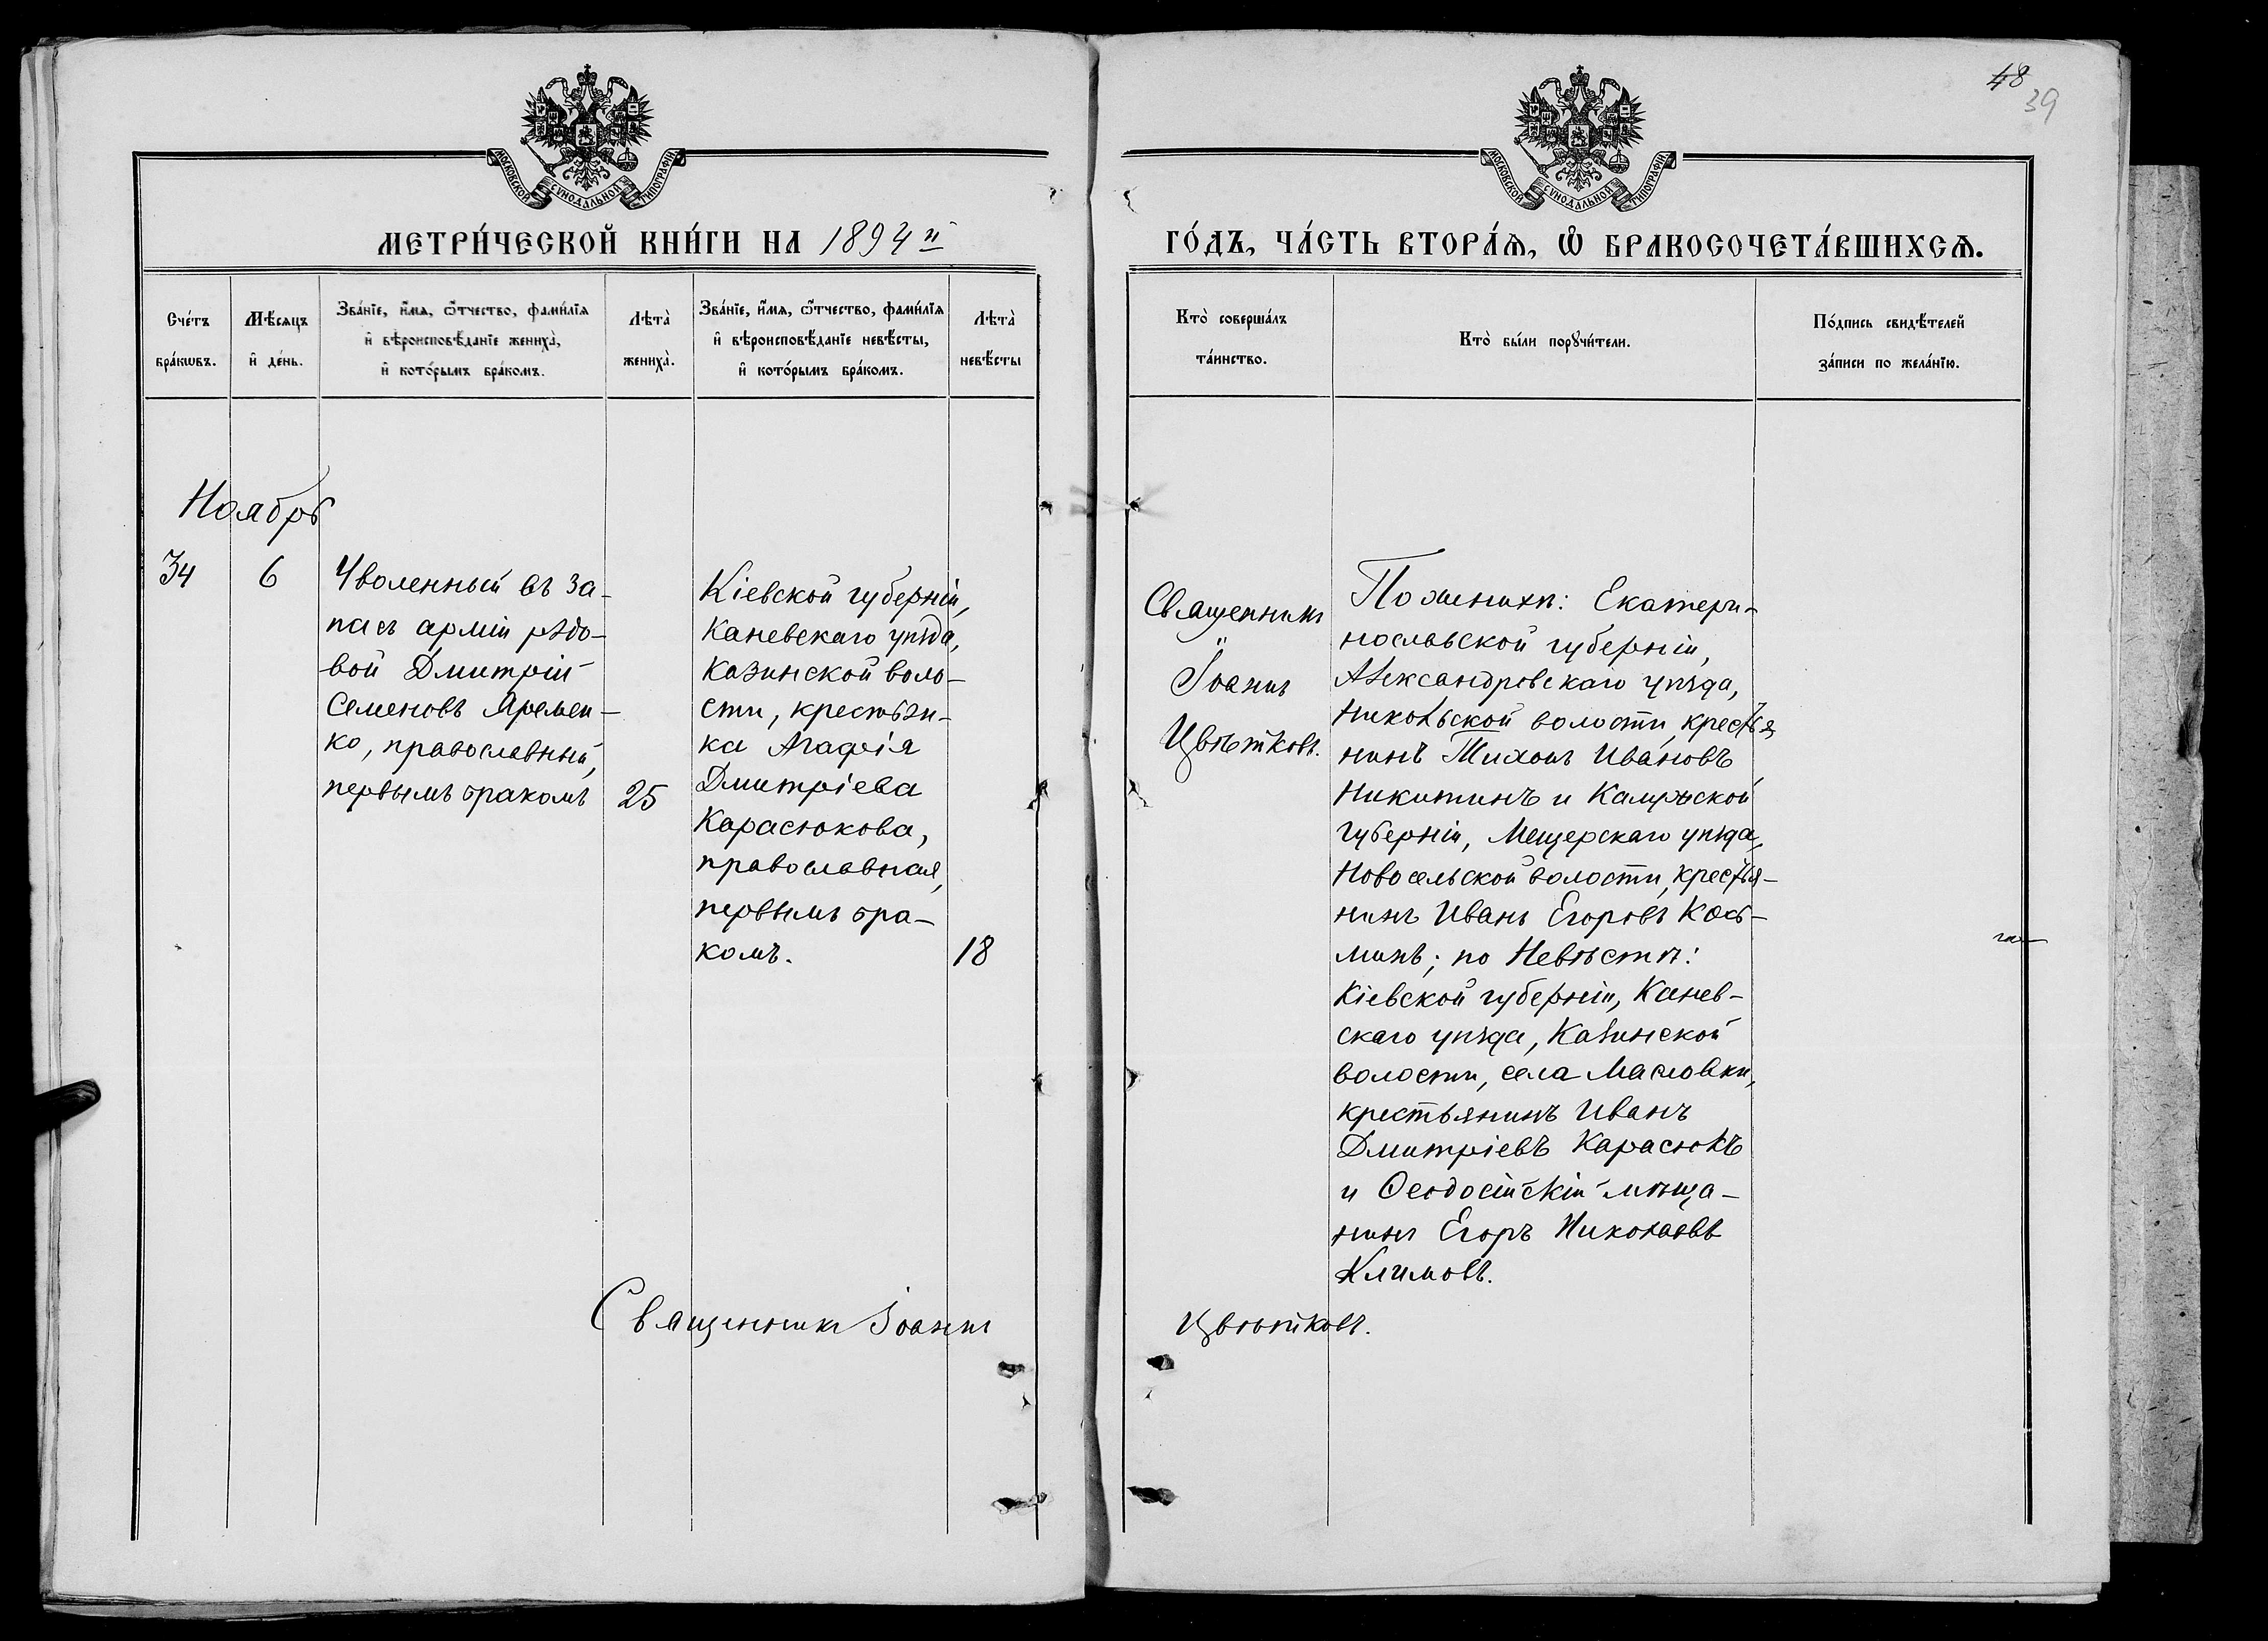 48
39
МОСКОВСКОЙ СУНОДАЛЬНОЙ ТИПОГРАФІИ
МОСКОВСКОЙ СУНОДАЛЬНОЙ ТИПОГРАФІИ
МЕТРИ́ЧЕСКОЙ КНИ́ГИ НА 1894 й
ГО́ДЪ, ЧА́СТЬ ВТОРА́Ѧ, Ѡ҆ БРАКОСОЧЕТА́ВШИХСѦ.
Сче́тъ
бра́кѡвъ.
Мѣ́сяцъ
и҆ де́нь.
Зва́нїе, и҆́мѧ, ѻ҆́тчество, фами́лїѧ
и҆ вѣроисповѣ́данїе жениха̀,
и҆ кото́рымъ бра́комъ.
Лѣта̀
жениха̀.
Зва́нїе, и҆́мѧ, ѻ҆́тчество, фами́лїѧ
и҆ вѣроисповѣ́данїе невѣ́сты,
и҆ кото́рымъ бра́комъ.
Лѣта̀
невѣ́сты
Кто̀ соверша́лъ
та́инство.
Кто̀ бы́ли порꙋчи́тели.
По́дпись свидѣ́телей
за́писи по жела́нїю.
Ноябрь
34
6
Уволенный въ за-
пасъ арміи рядо-
вой Дмитрій
Семеновъ Яремен-
ко, православный,
первымъ бракомъ
25
Кіевской губерніи,
Каневскаго уѣзда,
Казинской воло-
сти, крестьян-
ка Агафія
Дмитріева
Карасюкова,
православная,
первымъ бра-
комъ.
18
Священникъ
Іоаннъ
Цвѣтковъ.
По женихѣ: Екатери-
нославской губерніи,
Александровскаго уѣзда,
Никольской волости, крестья
нинъ Тихонъ Ивановъ
Никитинъ и Калужской
губерніи, Мещерскаго уѣзда,
Новосельской волости, крестья-
нинъ Иванъ Егоровъ Кось-
минъ; по Невѣстѣ:
Кіевской губерніи, Канев-
скаго уѣзда, Казинской
волости, села Масловки,
крестьянинъ Иванъ
Дмитріевъ Карасюкъ
и Ѳеодосійскій мѣща-
нинъ Егоръ Николаевъ
Климовъ.
Священникъ Іоаннъ
Цвѣтковъ.